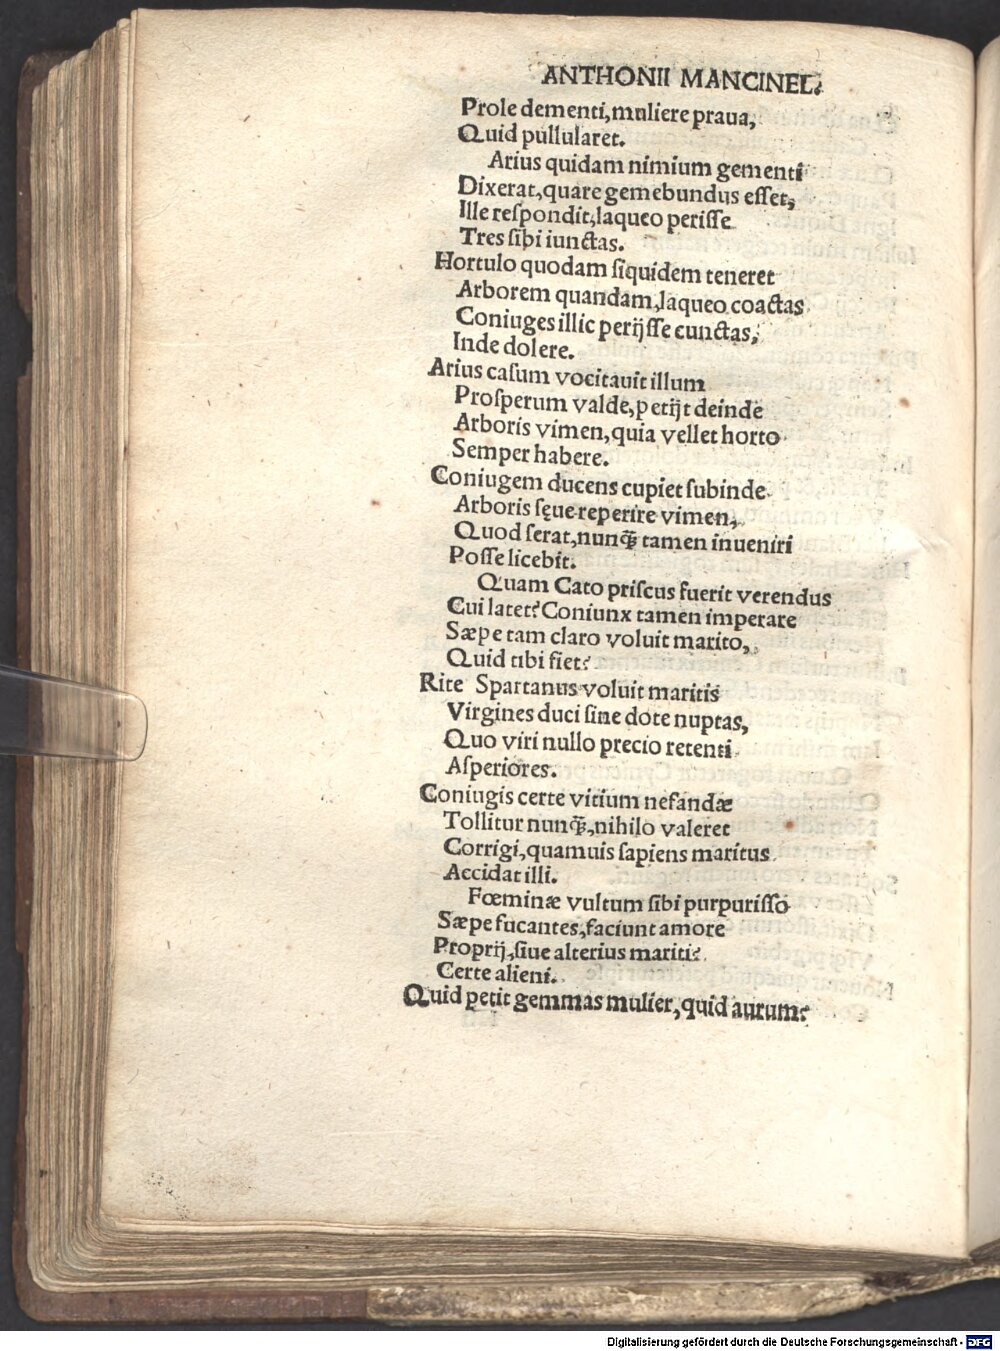 ANTHONII MANCINEL.
Prole dementi, muliere praua,
Quid pullularet.
Arius quidam nimium gementi
Dixerat, quare gemebundus eſſet,
Ille reſpondit, laqueo periſſe
Tres ſibi iunctas.
Hortulo quodam ſiquidem teneret
Arborem quandam, laqueo coactas
Coniuges illic perijſſe cunctas,
Inde dolere.
Arius caſum vocitauit illum
Proſperum valde, petijt deinde
Arboris vimen, quia vellet horto
Semper habere.
Coniugem ducens cupiet ſubinde
Arboris ſęue reperire vimen,
Quod ſerat, nunꝗ̃ tamen inueniri
Poſſe licebit.
Quam Cato priſcus fuerit verendus
Cui latet? Coniunx tamen imperare
Sæpe tam claro voluit marito,
Quid tibi fiet?
Rite Spartanus voluit maritis
Virgines duci ſine dote nuptas,
Quo viri nullo precio retenti
Aſperiores.
Coniugis certe vitium nefandæ
Tollitur nunꝗ̃, nihilo valeret
Corrigi, quamuis ſapiens maritus
Accidat illi.
Fœminæ vultum ſibi purpuriſſo
Sæpe fucantes, faciunt amore
Proprij, ſiue alterius mariti?
Certe alieni.
Quid petit gemmas mulier, quid aurum?
Digitalisierung gefördert durch die Deutsche Forschungsgemeinschaft - DFG